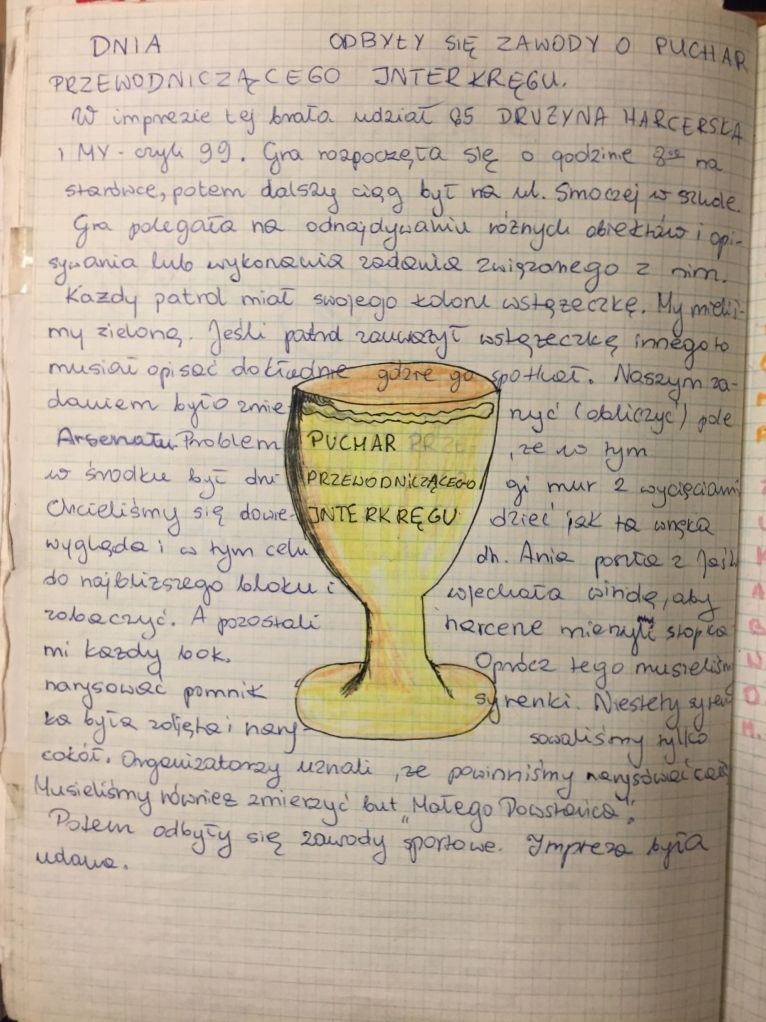 DNIA ODBYŁY SIĘ ZAWODY O PUCHAR
PRZEWODNICZĄCEGO INTERKRĘGU.
W imprezie tej brała udział 95 DRUŻYNA HARCERSKA
i MY - czyli 99. Gra rozpoczęła się o godzinie 8⁰⁰ na
starówce, potem dalszy ciąg był na ul. Smoczej w szkole.
Gra polegała na odnajdywaniu różnych obiektów i opi-
sywania lub wykonania zadania związanego z nim.
Każdy patrol miał swojego koloru wstążeczkę. My mieliś-
my zieloną. Jeśli patrol zauważył wstążeczkę innego to
musiał opisać dokładnie gdzie go spotkał. Naszym za-
daniem było zmie nyć (obliczyć) pole
Arsenału. Problem , że w tym
w środku był dru gi mur z wycięciami
Chcieliśmy się dowie- dzieć jak ta wnęka
wygląda i w tym celu dh. Ania poszła z
do najbliższego bloku i wjechała windą, aby
zobaczyć. A pozostali harcerze mierzyli stopka
mi każdy bok. Oprócz tego musieliśm
narysować pomnik syrenki. Niestety syren
ka była zdjęta i nary- sowaliśmy tylko
cokół. Organizatorzy uznali, że powinniśmy narysować
Musieliśmy również zmierzyć but "Małego Powstańca".
Potem odbyły się zawody sportowe. Impreza była
udana.
PUCHAR PRZE-
PRZEWODNICZĄCEGO
INTERKRĘGU